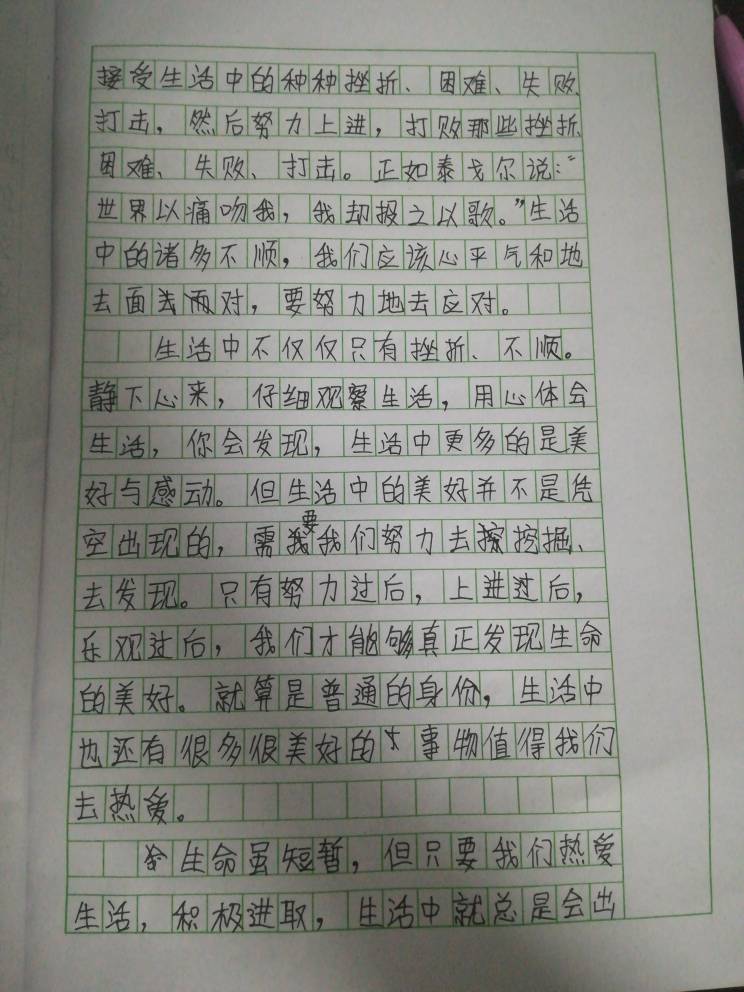 接受生活中的种种挫折、困难、失败、
打击，然后努力上进，打败那些挫折、
困难、失败、打击。正如泰戈尔说：“
世界以痛吻我，我却报之以歌。”生活
中的诸多不顺，我们应该心平气和地
去面对，要努力地去应对。
生活中不仅仅只有挫折、不顺。
静下心来，仔细观察生活，用心体会
生活，你会发现，生活中更多的是美
好与感动。但生活中的美好并不是凭
空出现的，需要我们努力去挖掘、
去发现。只有努力过后，上进过后，
乐观过后，我们才能够真正发现生命
的美好。就算是普通的身份，生活中
也还有很多很美好的事物值得我们
去热爱。
生命虽短暂，但只要我们热爱
生活，积极进取，生活中就总是会出